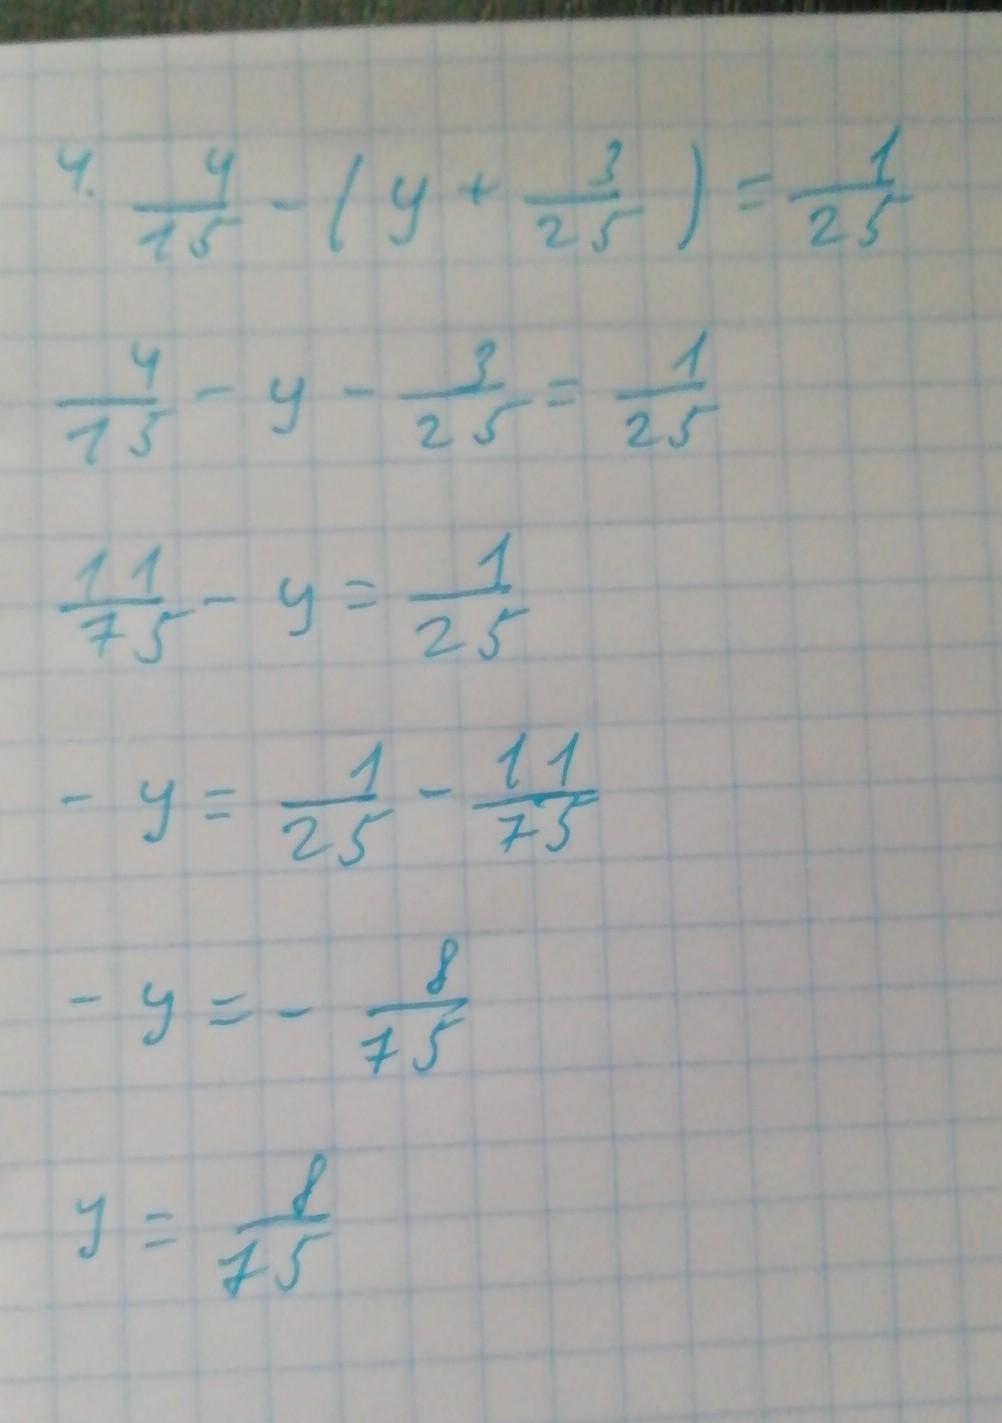 4. 4/15 - ( y + 3/25 ) = 1/25
4/15 - y - 3/25 = 1/25
11/75 - y = 1/25
- y = 1/25 - 11/75
- y = - 8/75
y = 8/75